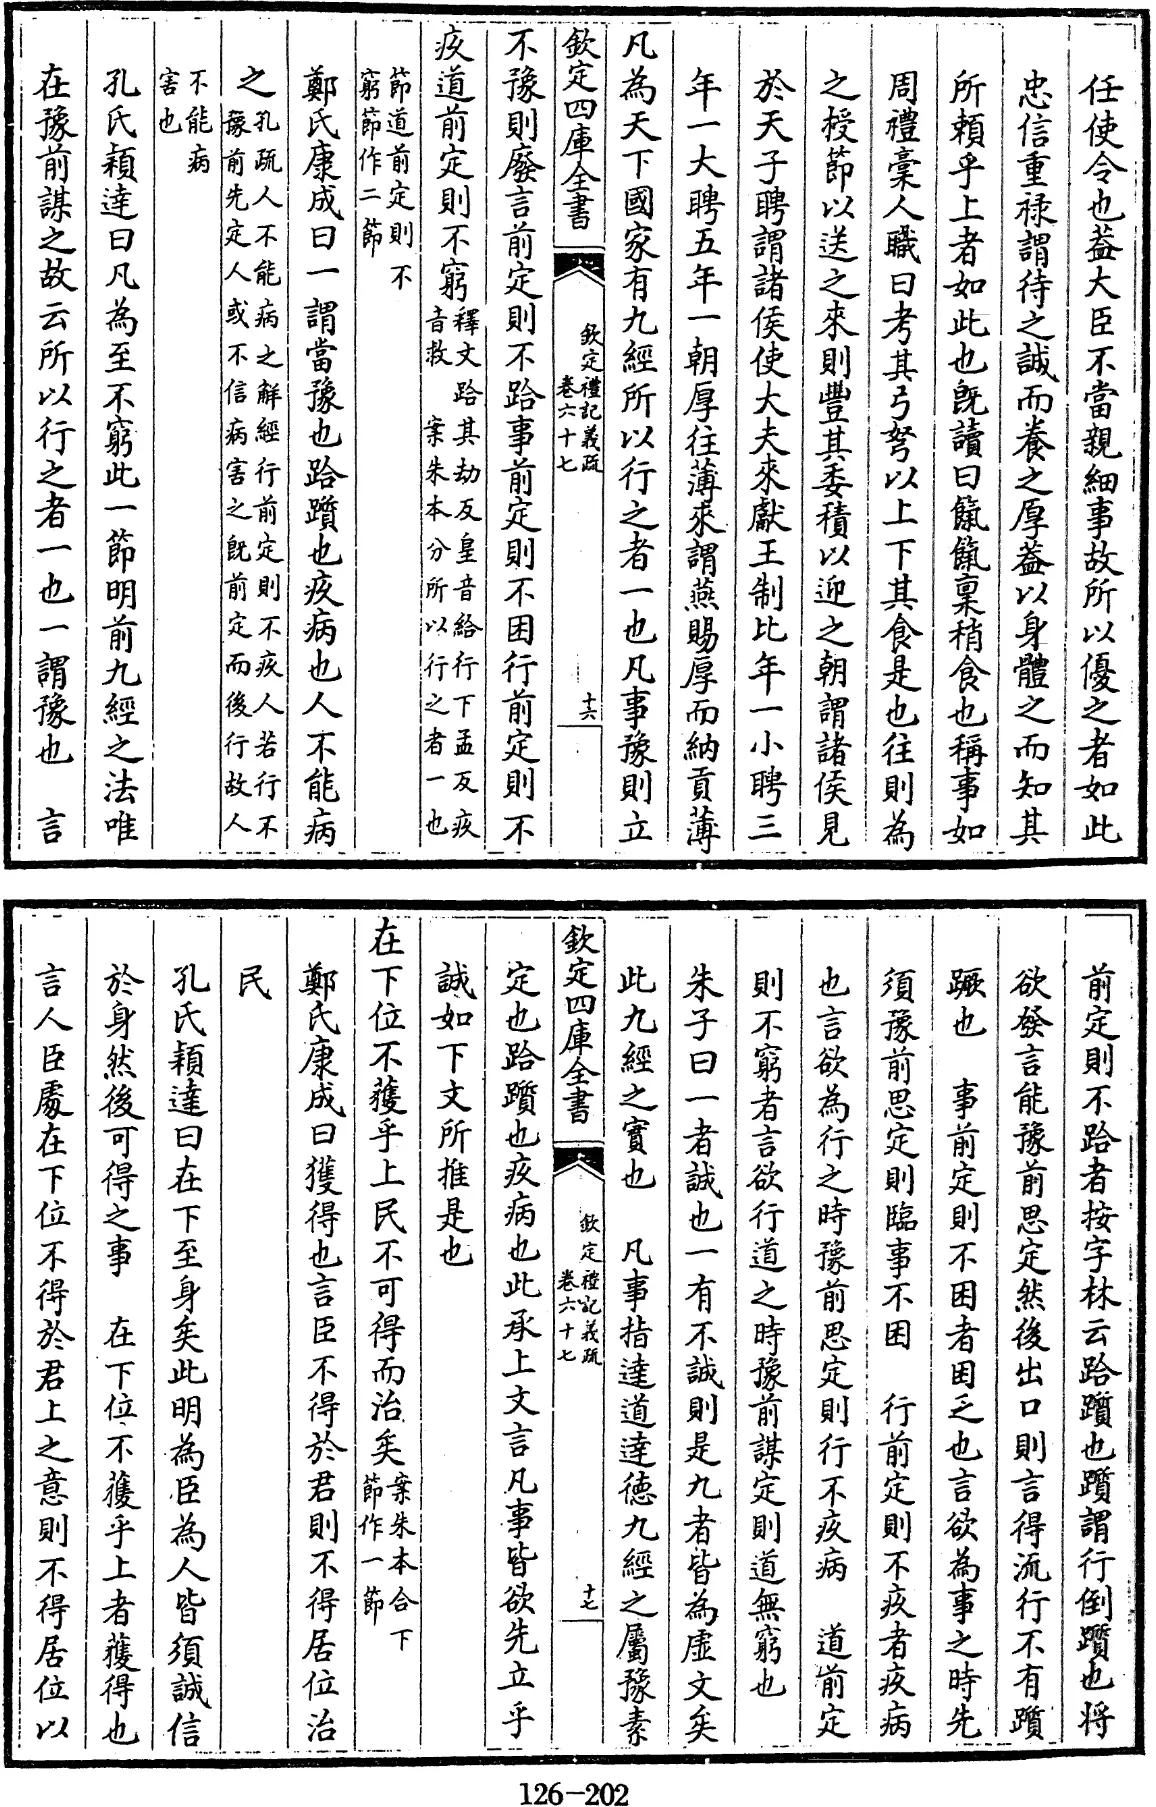 任使令也葢大臣不當親細事故所以優之者如此
忠信重祿謂待之誠而養之厚葢以身體之而知其
所賴乎上者如此也旣讀曰餼餼稟稍食也稱事如
周禮稾人職曰考其弓弩以上下其食是也往則為
之授節以送之來則豐其委積以迎之朝謂諸侯見
於天子聘謂諸侯使大夫來獻王制比年一小聘三
年一大聘五年一朝厚往薄來謂燕賜厚而納貢薄
凡為天下國家有九經所以行之者一也凡事豫則立
欽定四庫全書
欽定禮記義疏
卷六十七
十六
不豫則廢言前定則不跲事前定則不困行前定則不
疚道前定則不窮
釋文跲其劫反皇音給行下孟反疚
音救 案朱本分所以行之者一也
節道前定則不
窮節作二節
鄭氏康成曰一謂當豫也跲躓也疚病也人不能病
之
孔疏人不能病之解經行前定則不疚人若行不
豫前先定人或不信病害之旣前定而後行故人
不能病
害也
孔氏穎達曰凡為至不窮此一節明前九經之法唯
在豫前謀之故云所以行之者一也一謂豫也 言
前定則不跲者按字林云跲躓也躓謂行倒躓也將
欲發言能豫前思定然後出口則言得流行不有躓
蹶也 事前定則不困者困乏也言欲為事之時先
須豫前思定則臨事不困 行前定則不疚者疚病
也言欲為行之時豫前思定則行不疚病 道前定
則不窮者言欲行道之時豫前謀定則道無窮也
朱子曰一者誠也一有不誠則是九者皆為虛文矣
此九經之實也 凡事指達道達德九經之屬豫素
欽定四庫全書
欽定禮記義疏
卷六十七
十七
定也跲躓也疚病也此承上文言凡事皆欲先立乎
誠如下文所推是也
在下位不獲乎上民不可得而治矣
案朱本合下
節作一節
鄭氏康成曰獲得也言臣不得於君則不得居位治
民
孔氏穎達曰在下至身矣此明為臣為人皆須誠信
於身然後可得之事 在下位不獲乎上者獲得也
言人臣處在下位不得於君上之意則不得居位以
126-202